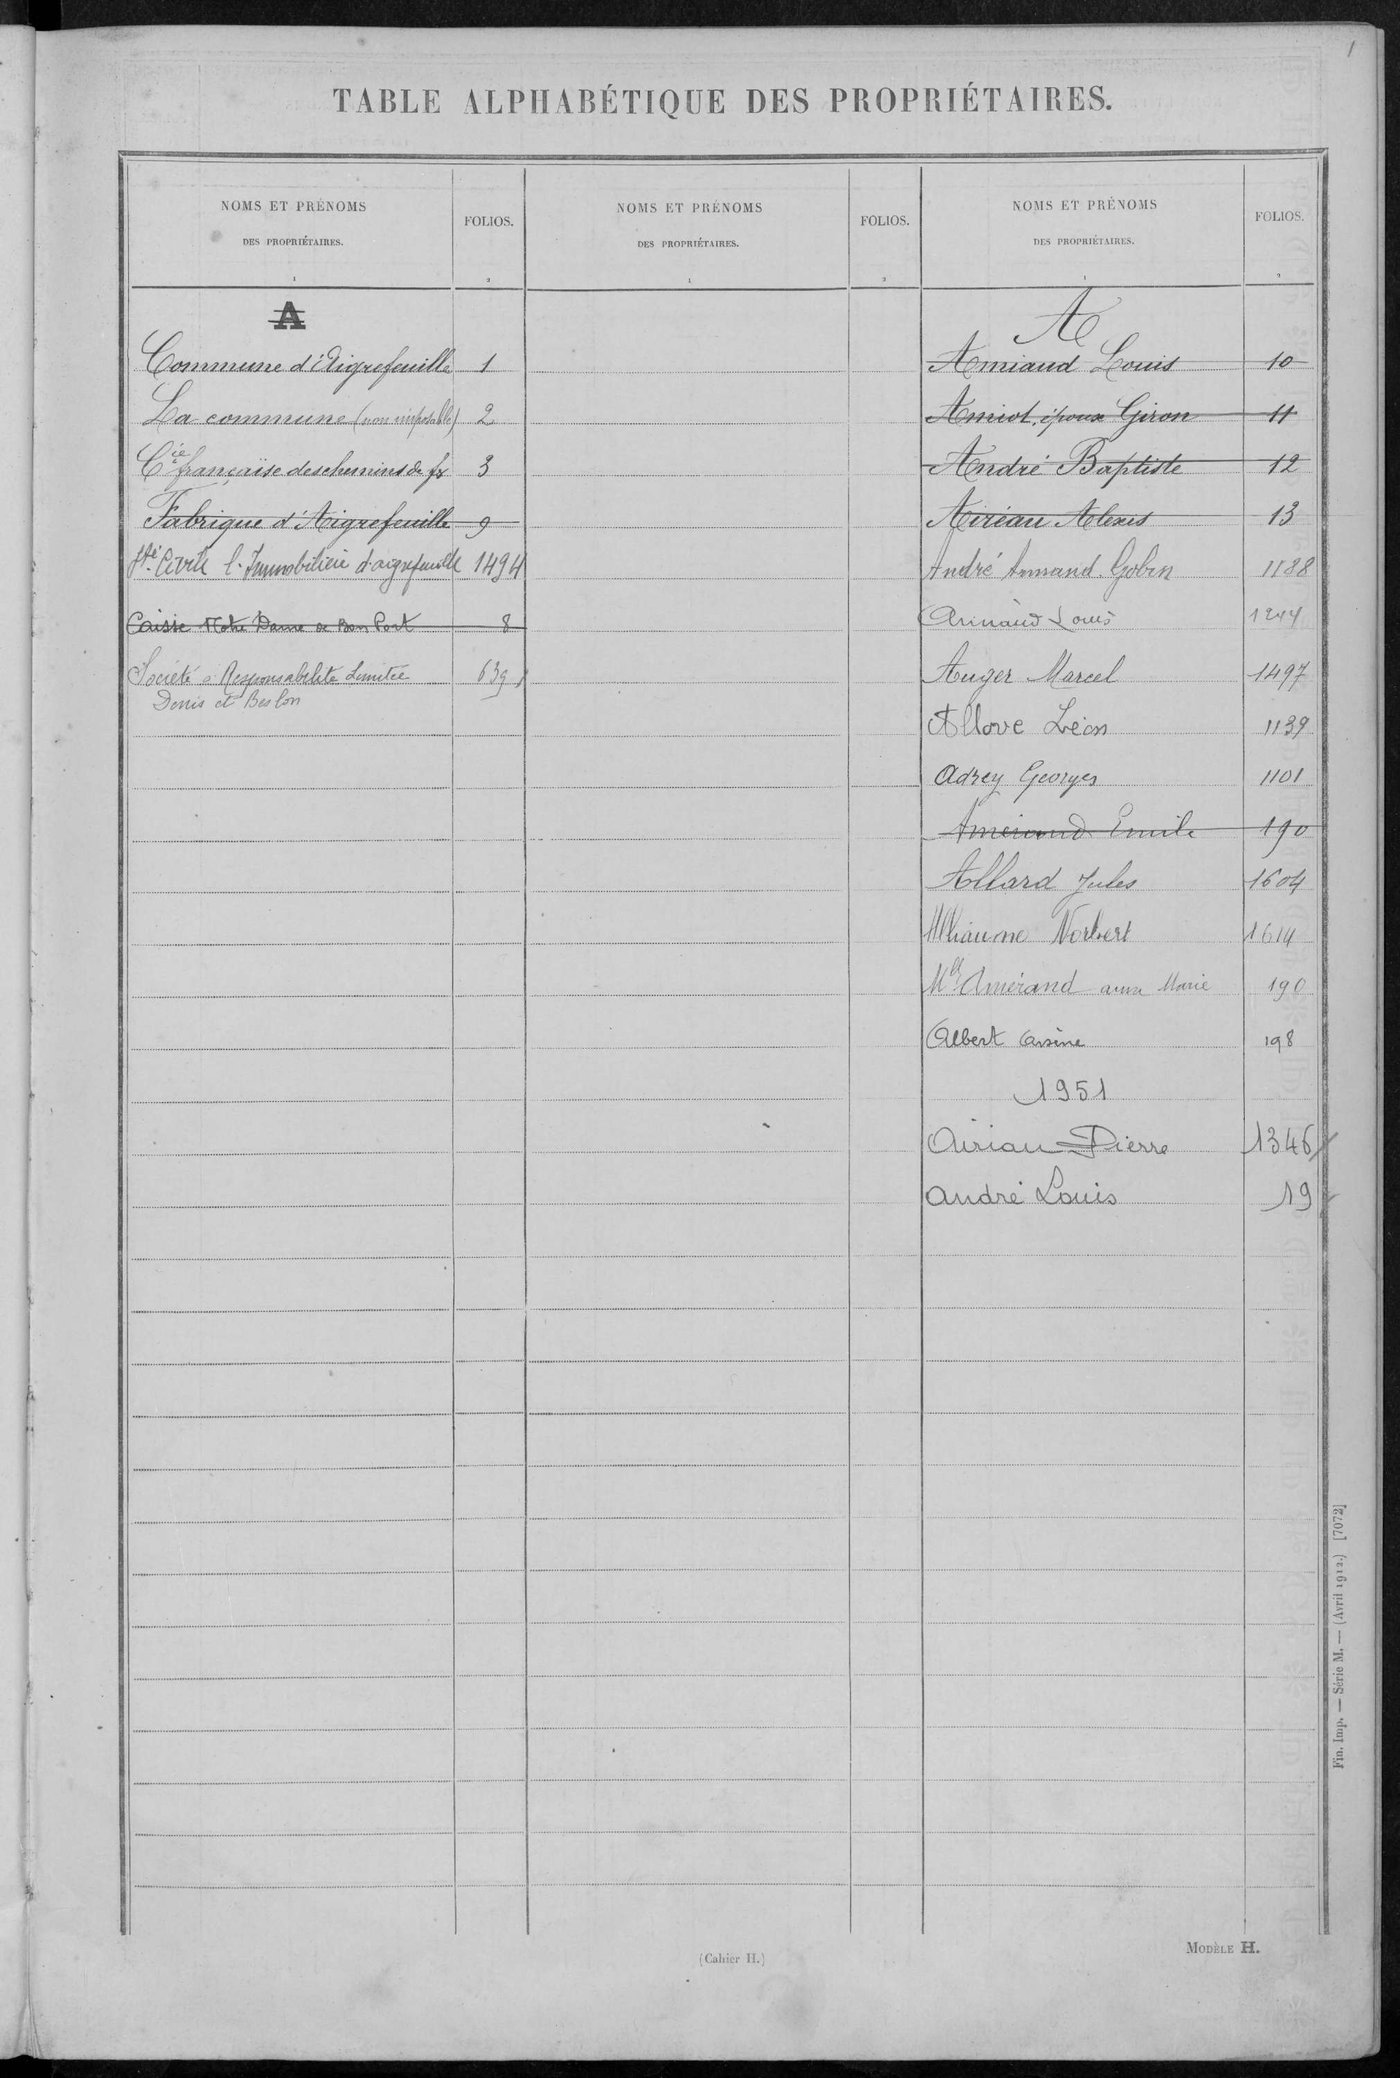 1
TABLE ALPHABÉTIQUE DES PROPRIÉTAIRES.
NOMS ET PRÉNOMS
DES PROPRIÉTAIRES.
1
FOLIOS.
2
NOMS ET PRÉNOMS
DES PROPRIÉTAIRES.
1
FOLIOS.
2
NOMS ET PRÉNOMS
DES PROPRIÉTAIRES.
1
FOLIOS.
2
A
Commune d'Aigrefeuille 1
La commune (non imposable) 2
Cie française des chemins de fer 3
Fabrique d'Aigrefeuille 9
Sté Civile l'Immobilière d'aigrefeuille 1494
Caisse Notre Dame de Bon Port 8
Société à Responsabilité Limitée 639
Denis et Beslon
A
Amiaud Louis 10
Amiot, époux Giron 11
André Baptiste 12
Airiau Alexis 13
André Armand Gobin 1188
Louis 1244
Auger Marcel 1497
Allove Léon 1139
Adrey Georges 1101
Amérand Emile 190
Allard Jules 1604
Norbert 1614
Amérand Marie 190
Albert Arsène 198
1951
Airiau Pierre 1346
André Louis 19
(Cahier H.)
MODÈLE H.
Fin. Imp. — Série M. — (Avril 1912.) [7072]